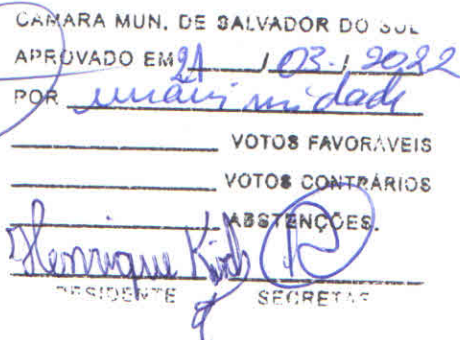 CAMARA MUN. DE SALVADOR DO SUL
APROVADO EM 21 / 03 / 2022
POR unanimidade
VOTOS FAVORÁVEIS
VOTOS CONTRÁRIOS
ABSTENÇÕES.
Henrique
PRESIDENTE SECRETÁR